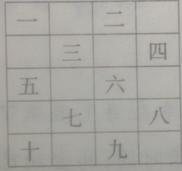 一 二
三 四
五 六
七 八
十 九